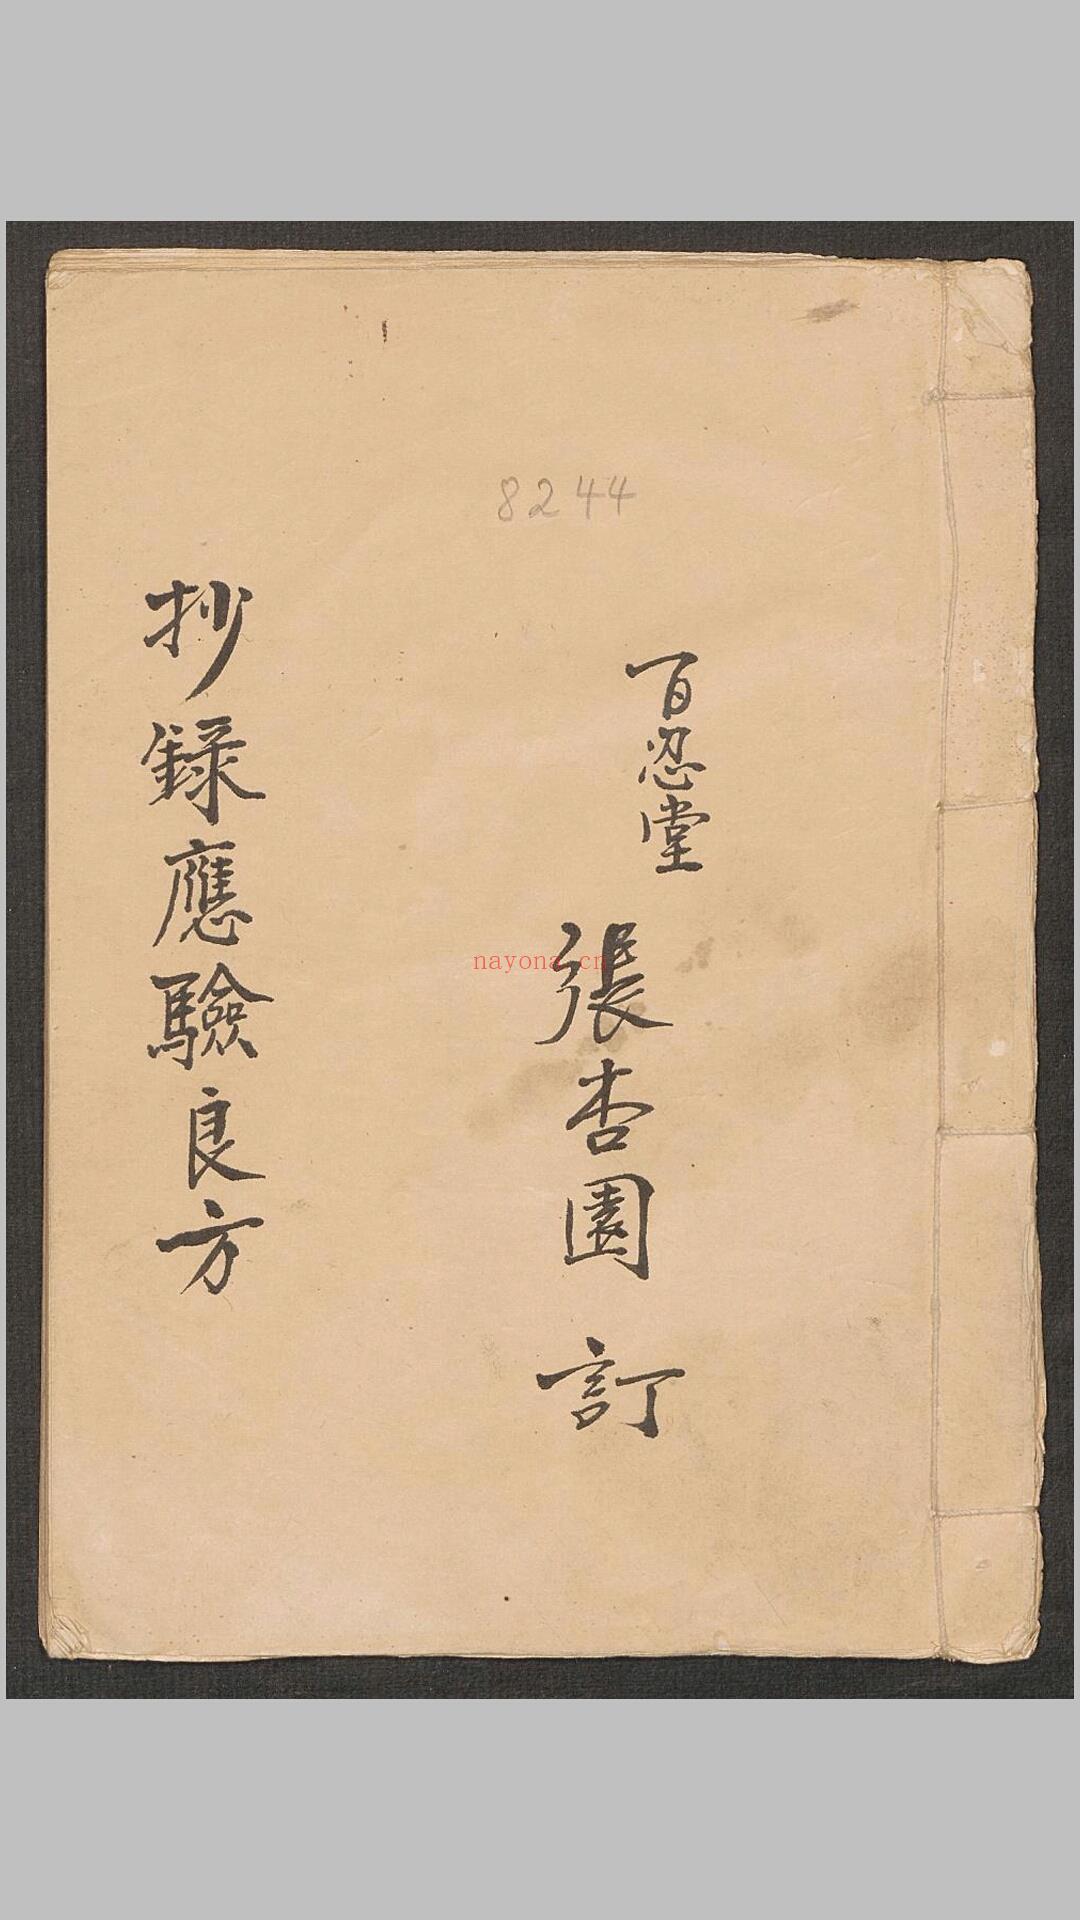 8244
百忍堂
張杏園 訂
抄録應驗良方
nayona.cn